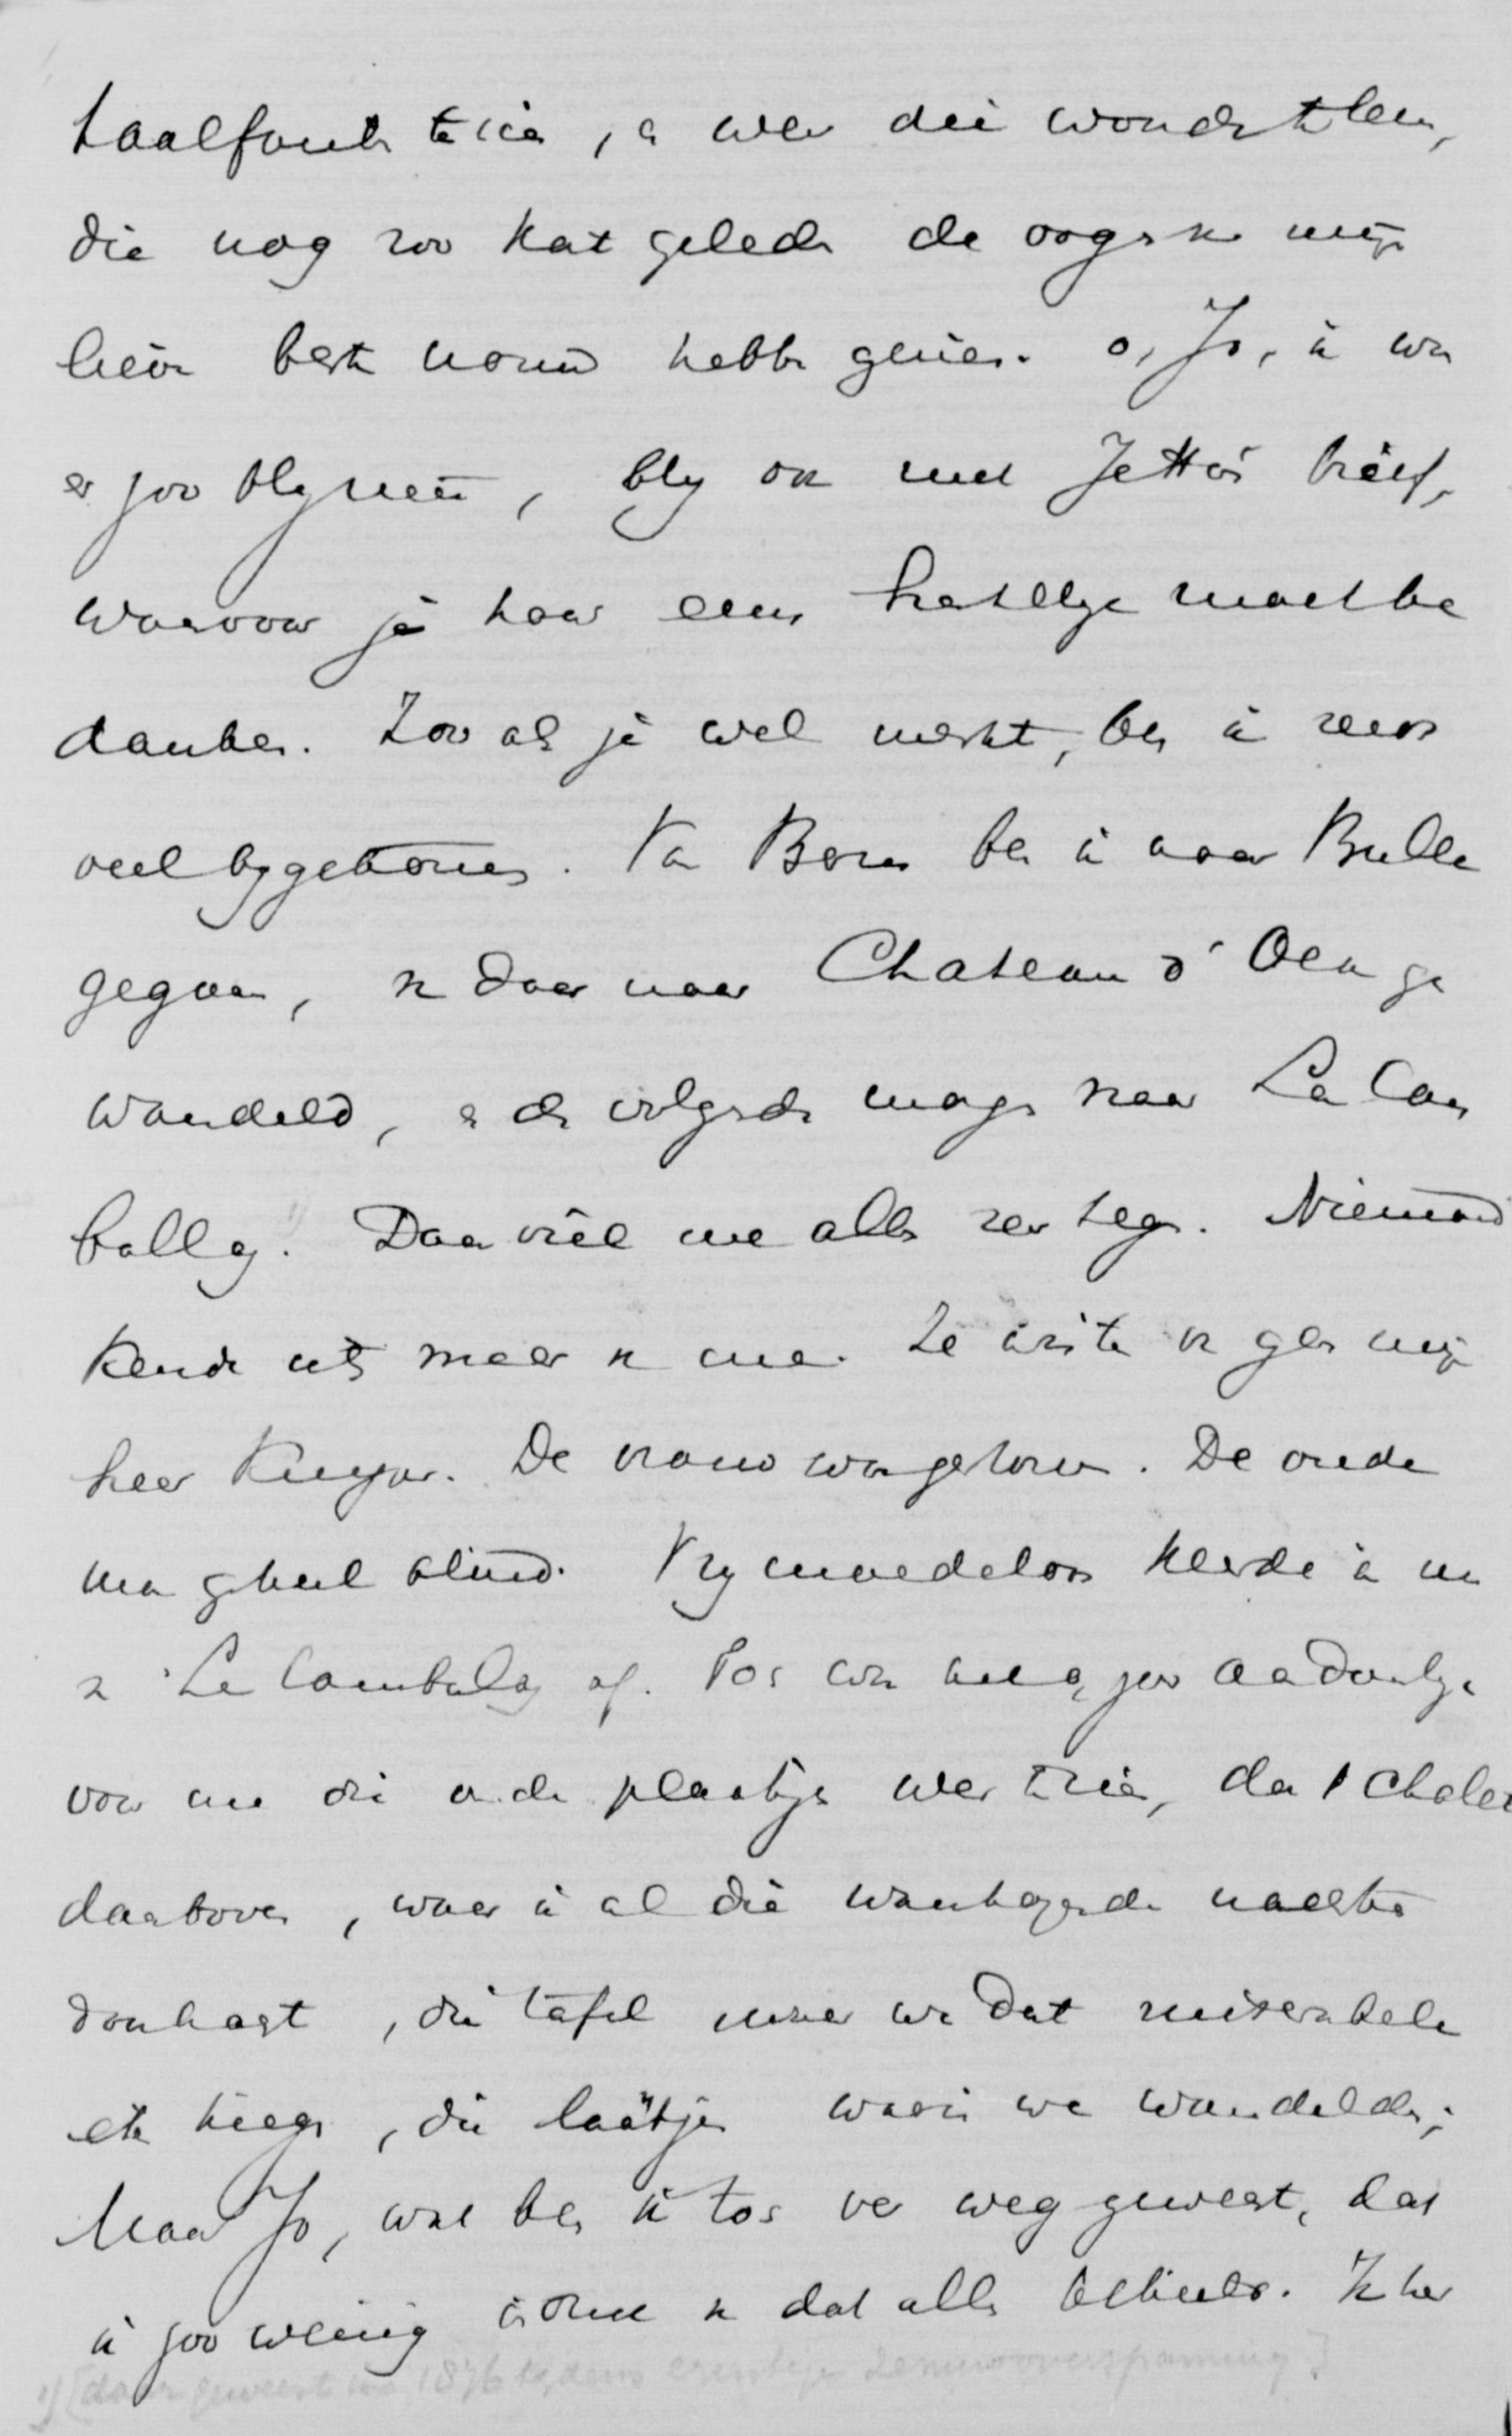 taalfouten te zien, en weer die wonderteekens,
die nog zoo kort geleden de oogen van mijn
lieve beste vrouw hebben gezien. O, Jo, ik was
er zoo bly mee, bly ook met Jetta's brief,
waarvoor je haar eens hartelyk moet be
danken. Zoo als je wel merkt, ben ik reeds
veel bygekomen. Van Bern ben ik naar Bulle
gegaan, van daar naar Chateau d'Oex ge
wandeld, en den volgenden morgen naar La Com
ballaz. 1) Daar viel me alles zeer tegen. Niemand
kende iets meer van me. Ze wisten ook geen mijn
heer Kuyper. De vrouw was gestorven. De oude
man geheel blind. Vry moedeloos keerde ik me
van La Comballaz af. Toch was me zoo aandoenlyk
voor me die oude plaatsjes weer te zien, dat chalet
daarboven, waar ik al die wanhopende nachten
doorbracht, die tafel waar we dat miserabele
eten kregen, die laantjes waarin we wandelden;
Maar Jo, wat ben ik toch ver weg geweest, dat
ik zoo weinig van dat alles
1) [daar geweest in 1876 tydens ernstige zenuwoverspanning]